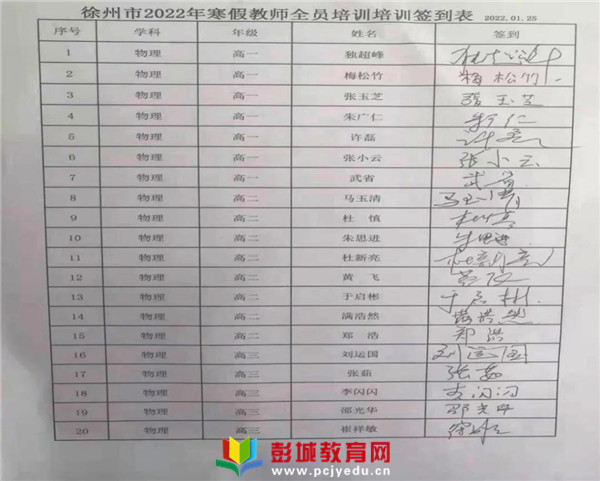 徐州市2022年寒假教师全员培训培训签到表 2022.01.25
序号 学科 年级 姓名 签到
1 物理 高一 独超峰
2 物理 高一 梅松竹 梅松竹
3 物理 高一 张玉芝 张玉芝
4 物理 高一 朱广仁
5 物理 高一 许磊
6 物理 高一 张小云 张小云
7 物理 高一 武省 武省
8 物理 高二 马玉清 马玉清
9 物理 高二 杜慎
10 物理 高二 朱思进 朱思进
11 物理 高二 杜新亮 杜新亮
12 物理 高二 黄飞
13 物理 高二 于启彬 于启彬
14 物理 高二 满浩然 满浩然
15 物理 高二 郑浩 郑浩
16 物理 高三 刘运国 刘运国
17 物理 高三 张茹 张茹
18 物理 高三 李闪闪 李闪闪
19 物理 高三 邵光华 邵光华
20 物理 高三 崔祥敏
彭城教育网
www.pcjyedu.cn